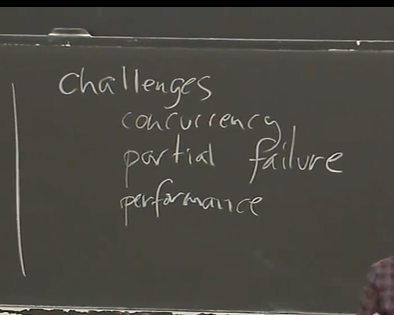 Challenges
concurrency
partial failure
performance